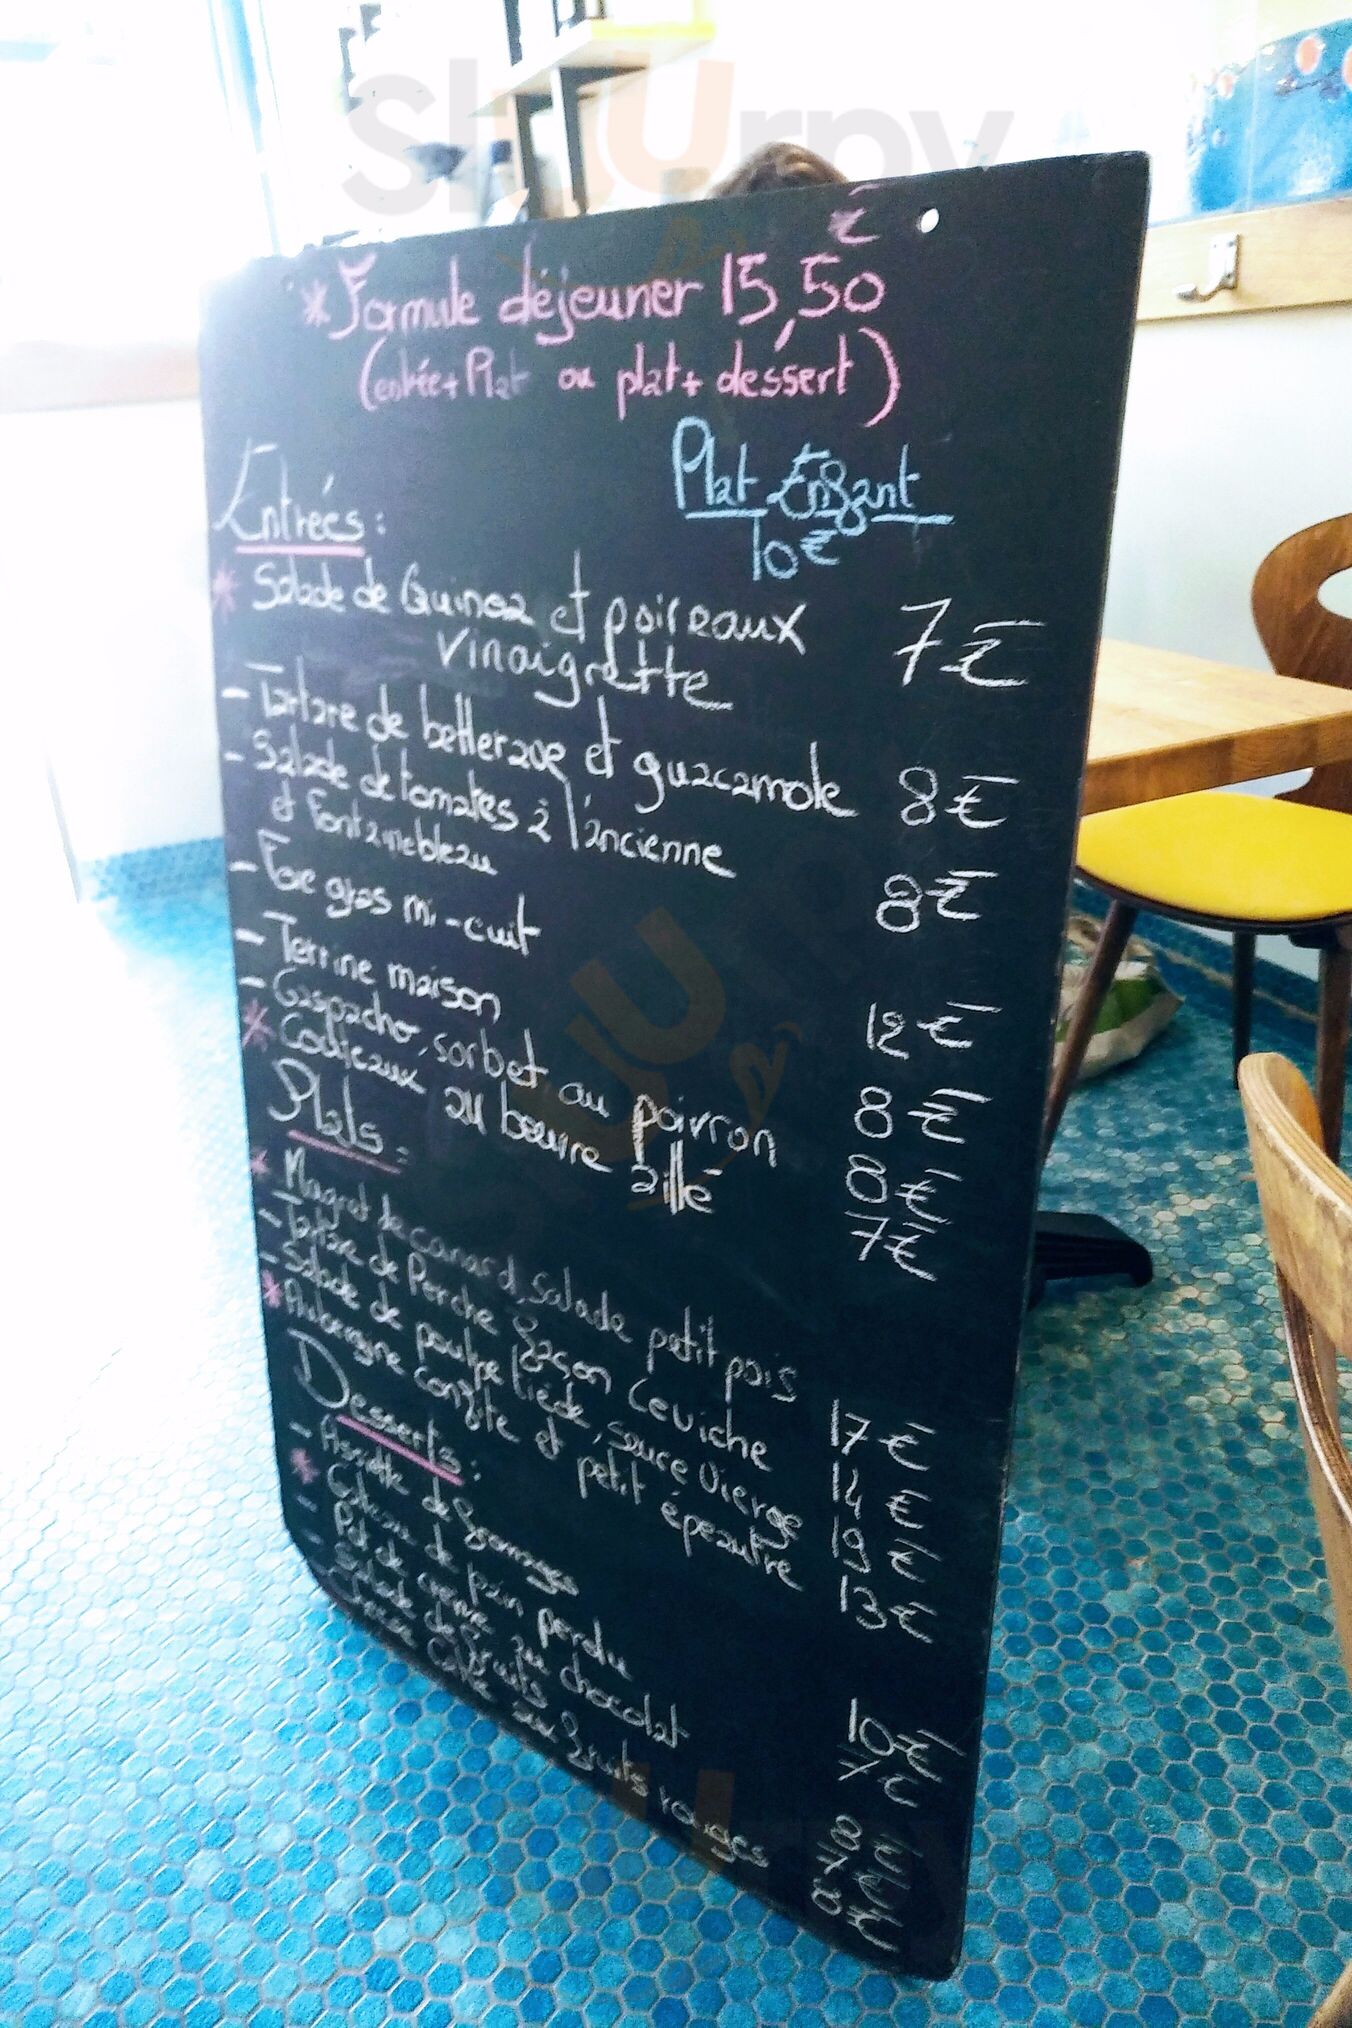 Sluurpy
* Formule déjeuner 15,50 €
(entrée + Plat ou plat + dessert)
Plat Enfant
10 €
Entrées :
* Salade de Quinoa et poireaux
vinaigrette 7 €
- Tartare de betterave et guacamole 8 €
- Salade de tomates à l'ancienne
et fontainebleau 8 €
- Foie gras mi-cuit 12 €
- Terrine maison 8 €
- Gaspacho, sorbet au poivron 8 €
* Couteaux au beurre aillé 7 €
Plats :
* Magret de canard, salade petit pois 17 €
- Tartare de Perche façon Ceviche 14 €
- Salade de poulpe tiède, sauce Vierge 19 €
* Aubergine confite et petit épeautre 13 €
Desserts :
- Assiette de fromages 10 €
* de pain perdu 7 €
- Pot de crème au chocolat 8 €
- Salade de fruits 7 €
- aux fruits rouges 8 €